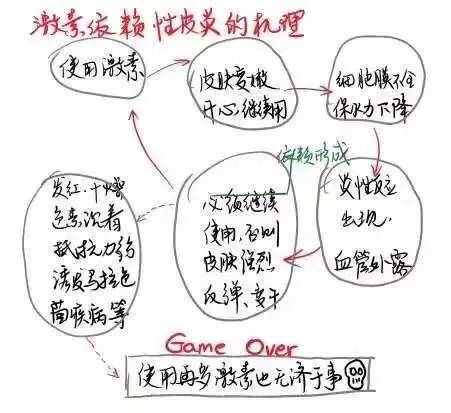 激素依赖性皮炎的机理
使用激素
皮肤变嫩
开心.继续用
细胞膜不全
保水力下降
依赖形成
炎性反应
出现.
血管外露
必须继续
使用,否则
皮肤强烈
反弹、变干
发红.干燥
色素沉着
抵抗力弱
诱发马拉色
菌疾病等
Game Over
使用再多激素也无济于事